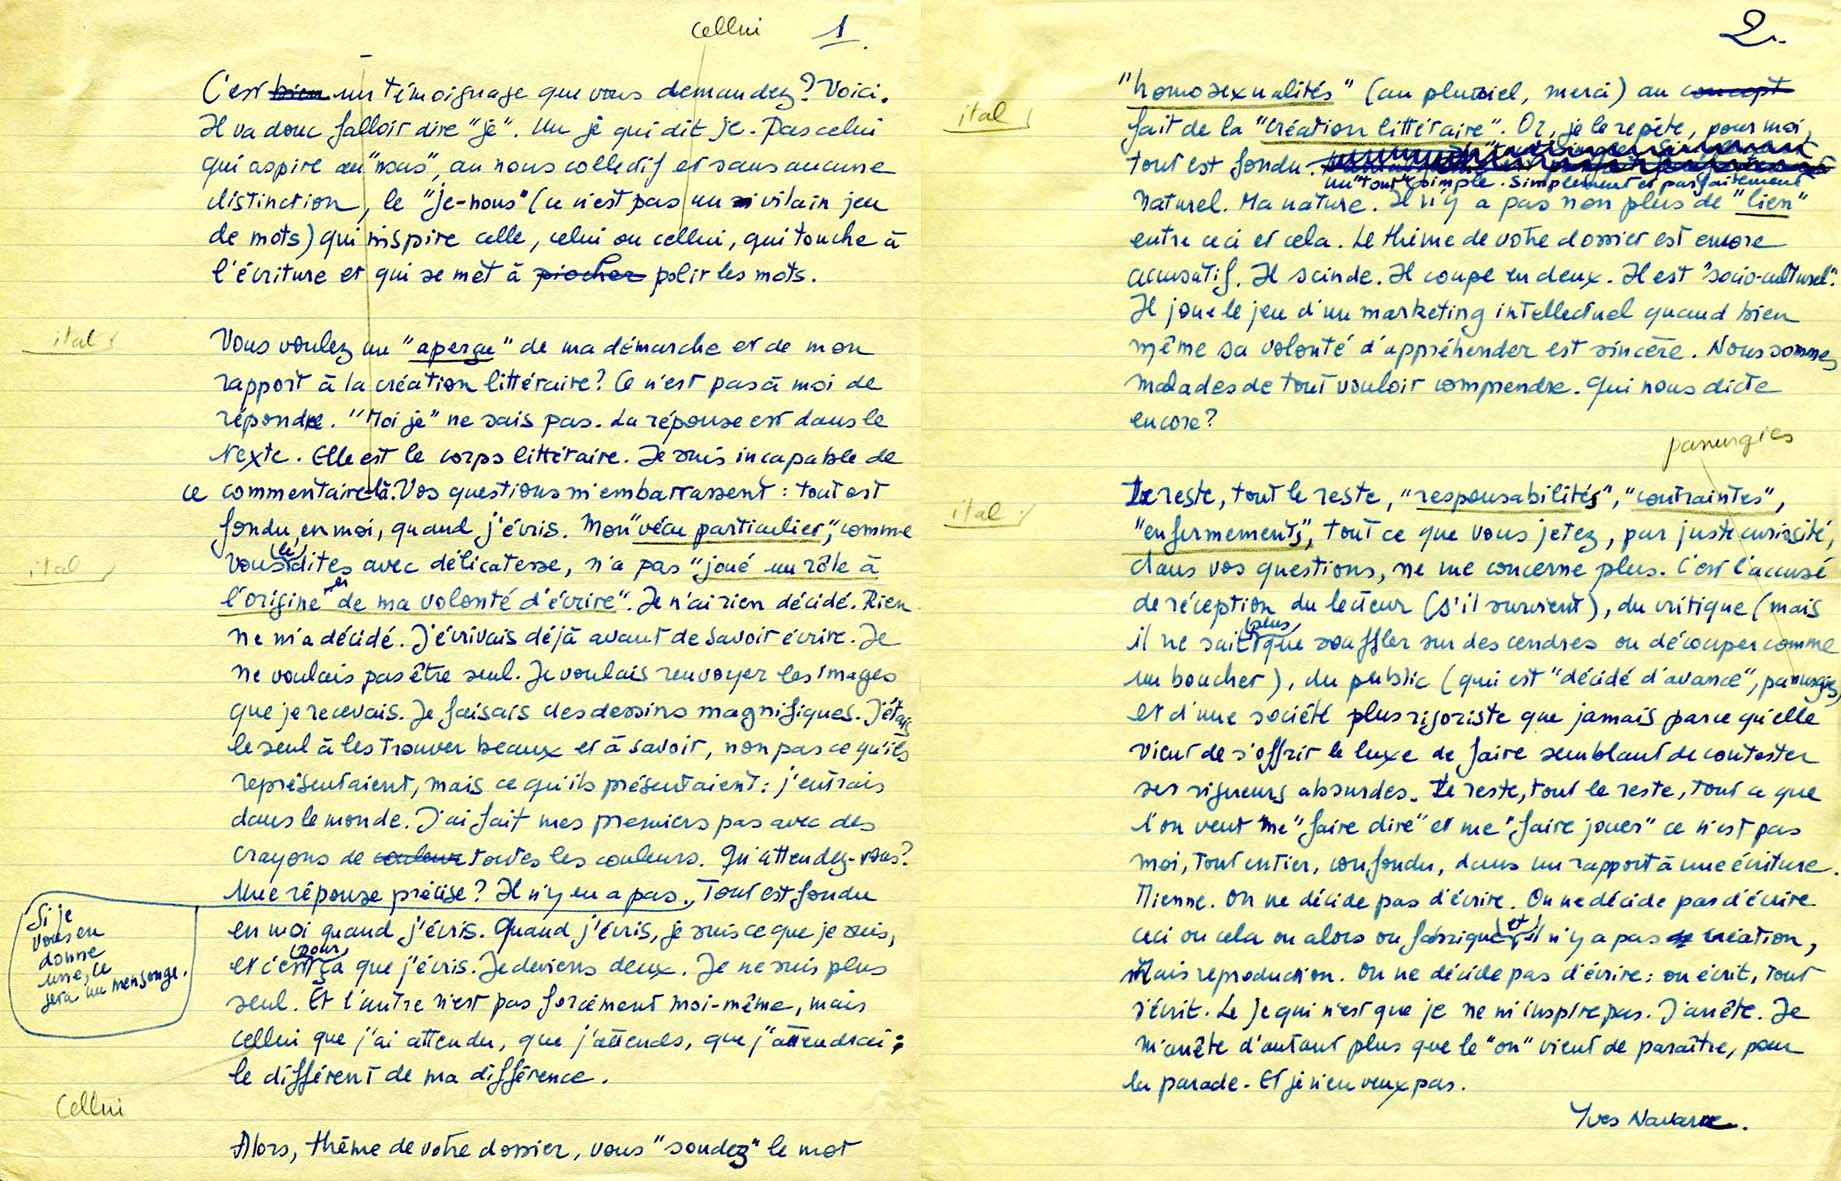 cellui
1.
C'est bien un témoignage que vous demandez? Voici.
Il va donc falloir dire "je". Un je qui dit je. Pas celui
qui aspire au "nous", au nous collectif et sans aucune
distinction, le "je-nous" (ce n'est pas un vilain jeu
de mots) qui m'inspire celle, celui ou cellui, qui touche à
l'écriture et qui se met à piocher polir les mots.
ital
Vous voulez un "aperçu" de ma démarche et de mon
rapport à la création littéraire? Ce n'est pas à moi de
répondre. "Moi je" ne sais pas. La réponse est dans le
texte. Elle est le corps littéraire. Je suis incapable de
ce commentaire-là. Vos questions m'embarrassent : tout est
fondu, en moi, quand j'écris. Mon "vécu particulier", comme
ital
vous le dites avec délicatesse, n'a pas "joué un rôle à
l'origine" et "de ma volonté d'écrire". Je n'ai rien décidé. Rien
ne m'a décidé. J'écrivais déjà avant de savoir écrire. Je
ne voulais pas être seul. Je voulais renvoyer les images
que je recevais. Je faisais des dessins magnifiques. J'étais
le seul à les trouver beaux et à savoir, non pas ce qu'ils
représentaient, mais ce qu'ils présentaient : j'entrais
dans le monde. J'ai fait mes premiers pas avec des
crayons de couleur toutes les couleurs. Qu'attendez-vous?
Une réponse précise? Il n'y en a pas. Tout est fondu
Si je
vous en
donne
une, ce
sera un mensonge.
en moi quand j'écris. Quand j'écris, je suis ce que je suis,
et c'est pour ça que j'écris. Je deviens deux. Je ne suis plus
seul. Et l'autre n'est pas forcément moi-même, mais
cellui que j'ai attendu, que j'attends, que j'attendrai ;
le différent de ma différence.
Cellui
Alors, thème de votre dossier, vous "soudez" le mot
2.
"homosexualités" (au pluriel, merci) au concept
ital
fait de la "création littéraire". Or, je le répète, pour moi,
tout est fondu.
un "tout" simple. Simplement et parfaitement
naturel. Ma nature. Il n'y a pas non plus de "lien"
entre ceci et cela. Le thème de votre dossier est encore
accusatif. Il scinde. Il coupe en deux. Il est "socio-culturel".
Il joue le jeu d'un marketing intellectuel quand bien
même sa volonté d'appréhender est sincère. Nous sommes
malades de tout vouloir comprendre. Qui nous dicte
encore?
panurgies
Le reste, tout le reste, "responsabilités", "contraintes",
ital
"enfermements", tout ce que vous jetez, par juste curiosité,
dans vos questions, ne me concerne plus. C'est l'accusé
de réception du lecteur (s'il survient), du critique (mais
il ne sait plus que souffler sur des cendres ou découper comme
un boucher), du public (qui est "décidé d'avance", panurgies)
et d'une société plus rigoriste que jamais parce qu'elle
vient de s'offrir le luxe de faire semblant de contester
ses rigueurs absurdes. Le reste, tout le reste, tout ce que
l'on veut me "faire dire" et me "faire jouer" ce n'est pas
moi, tout entier, confondu, dans un rapport à une écriture.
Mienne. On ne décide pas d'écrire. On ne décide pas d'écrire
ceci ou cela ou alors on fabrique et il n'y a pas création,
mais reproduction. On ne décide pas d'écrire : on écrit, tout
s'écrit. Le je qui n'est que je ne m'inspire pas. J'arrête. Je
m'arrête d'autant plus que le "on" vient de paraître, pour
la parade. Et je n'en veux pas.
Yves Navarre.